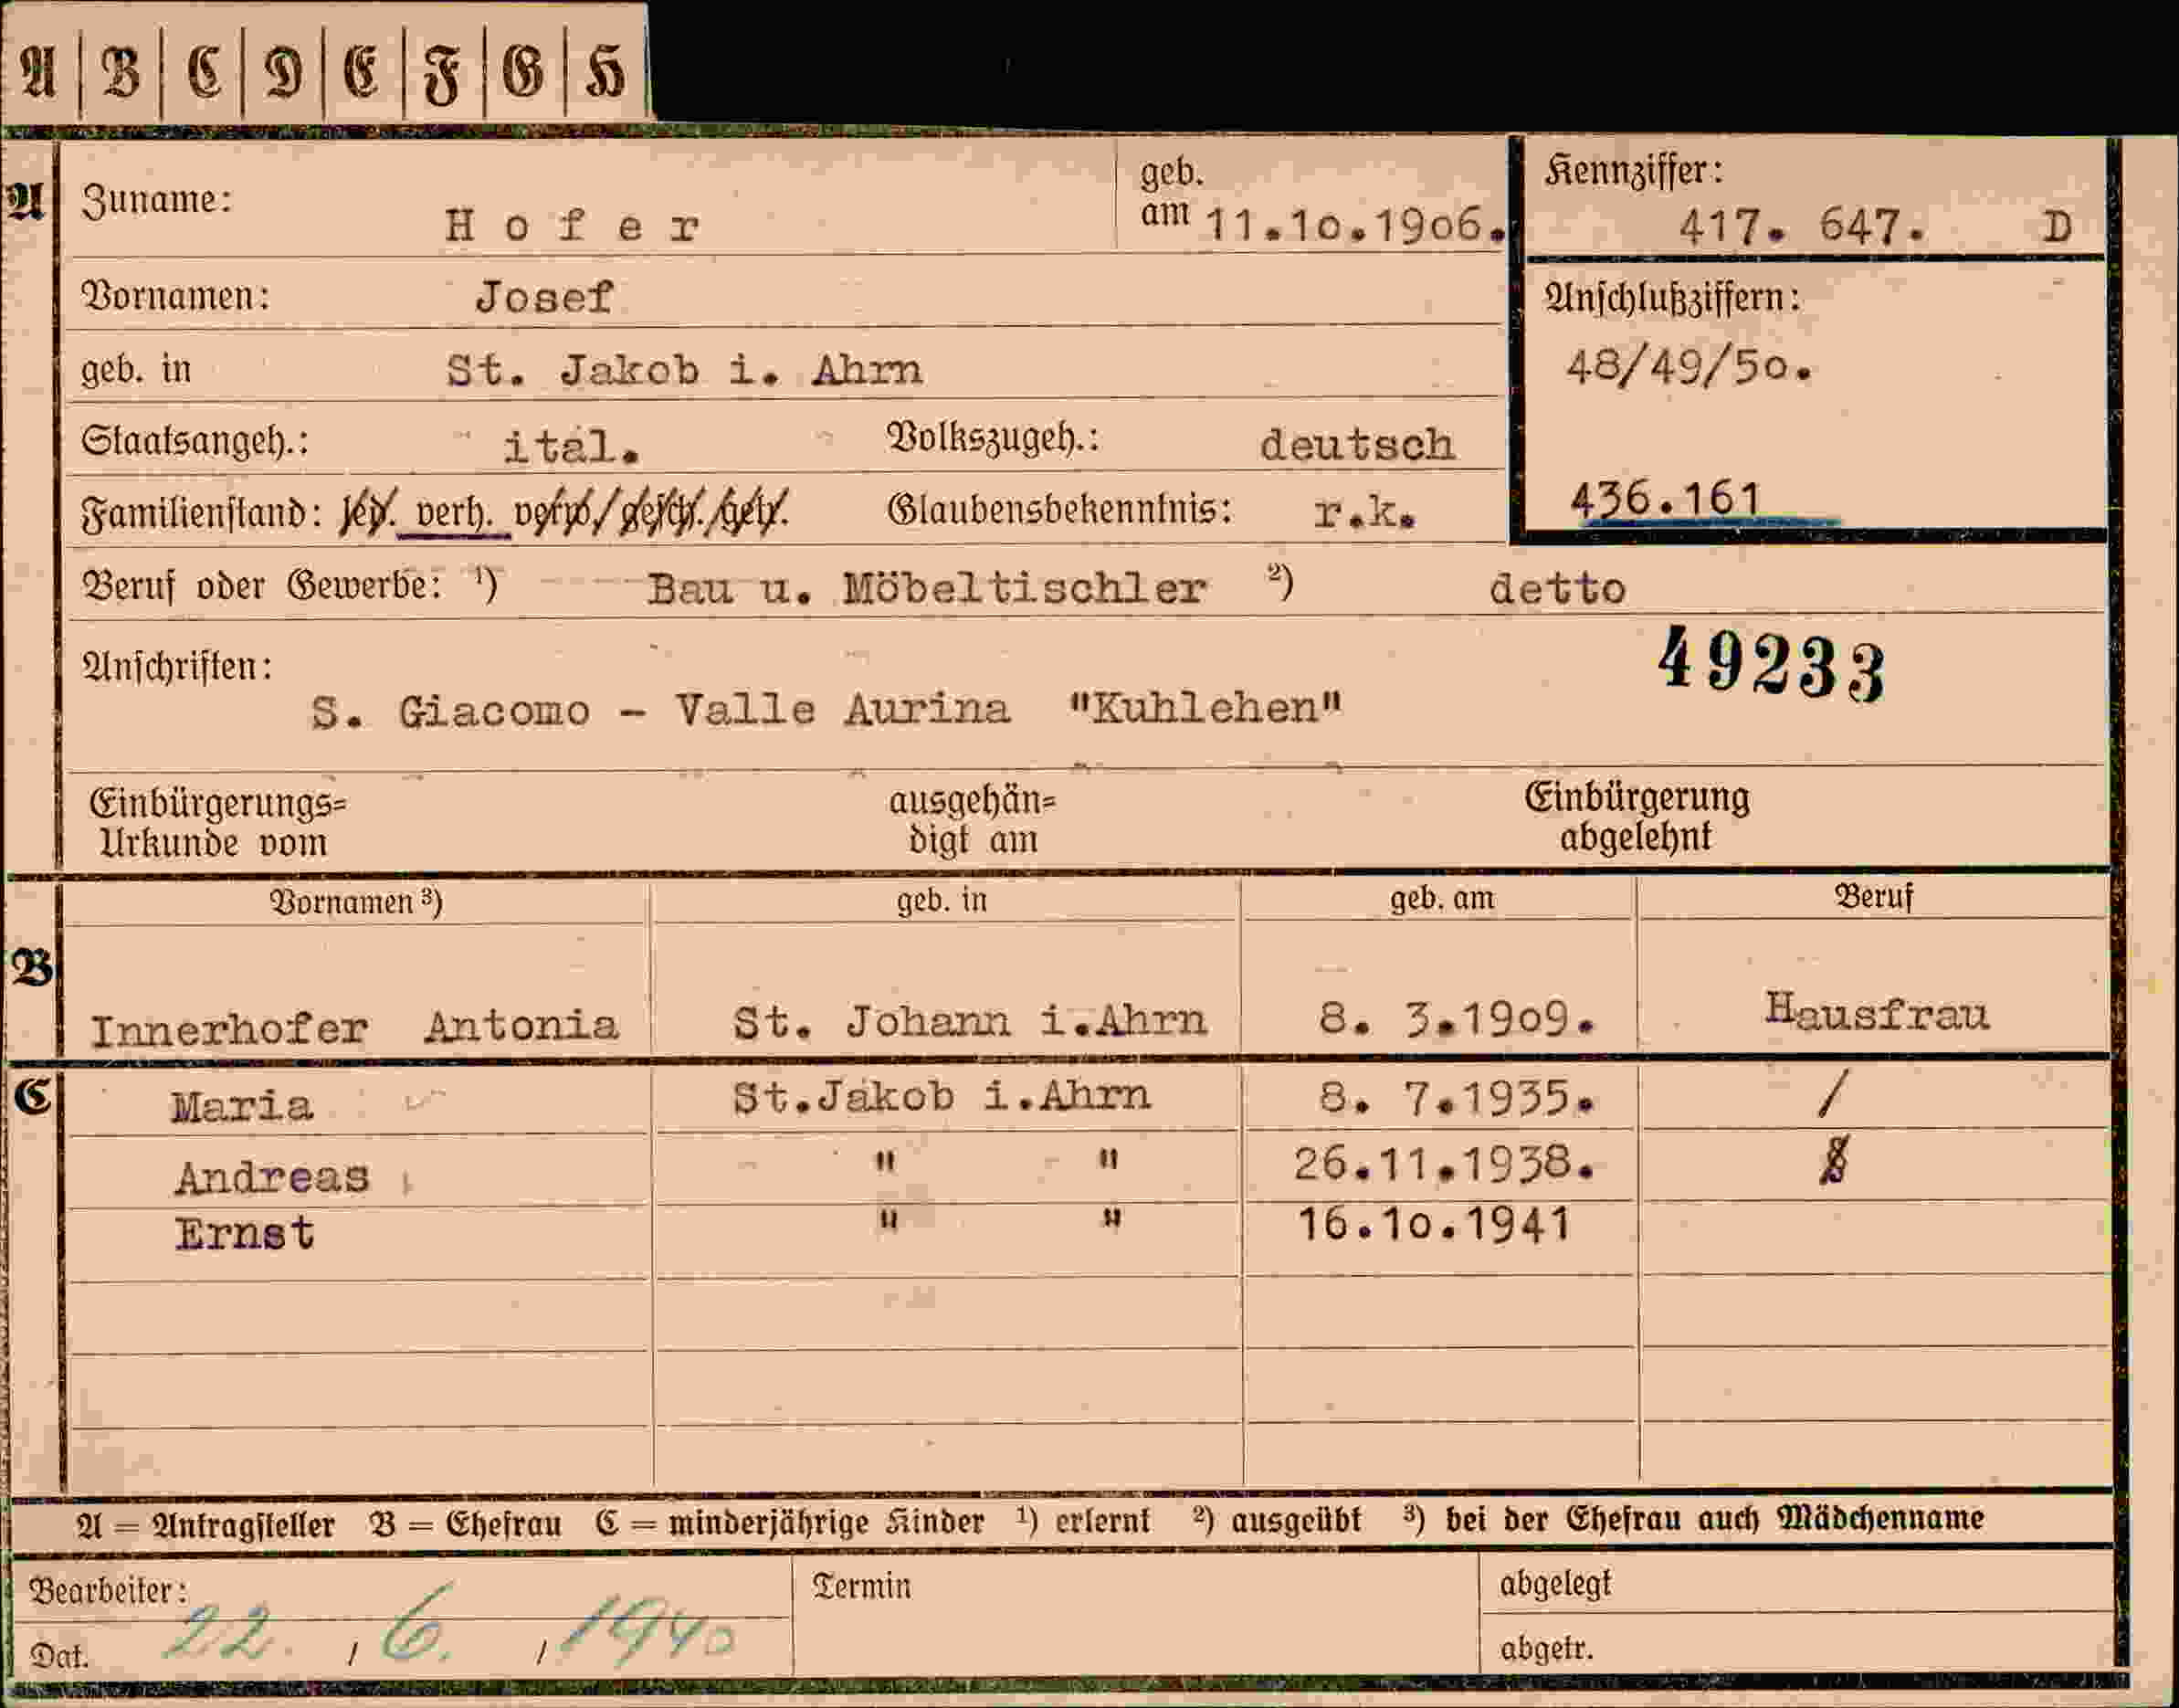 A B C D E F G H
A Zuname: Hofer geb. am 11.10.1906. Kennziffer: 417. 647. D
Vornamen: Josef Anschlußziffern:
geb. in St. Jakob i. Ahrn 48/49/50.
Staatsangeh.: ital. Volkszugeh.: deutsch
Familienstand: led. verh. verw./gesch./getr. Glaubensbekenntnis: r.k. 436.161
Beruf oder Gewerbe: ¹) Bau u. Möbeltischler ²) detto
Anschriften: 49233
S. Giacomo - Valle Aurina "Kuhlehen"
Einbürgerungs= ausgehän= Einbürgerung
Urkunde vom digt am abgelehnt
Vornamen ³) geb. in geb. am Beruf
B
Innerhofer Antonia St. Johann i.Ahrn 8. 3.1909. Hausfrau
C Maria St.Jakob i.Ahrn 8. 7.1935. /
Andreas " " 26.11.1938.
Ernst " " 16.10.1941
A = Antragsteller B = Ehefrau C = minderjährige Kinder ¹) erlernt ²) ausgeübt ³) bei der Ehefrau auch Mädchenname
Bearbeiter: Termin abgelegt
Dat. 22. / 6. / 1940 abgetr.